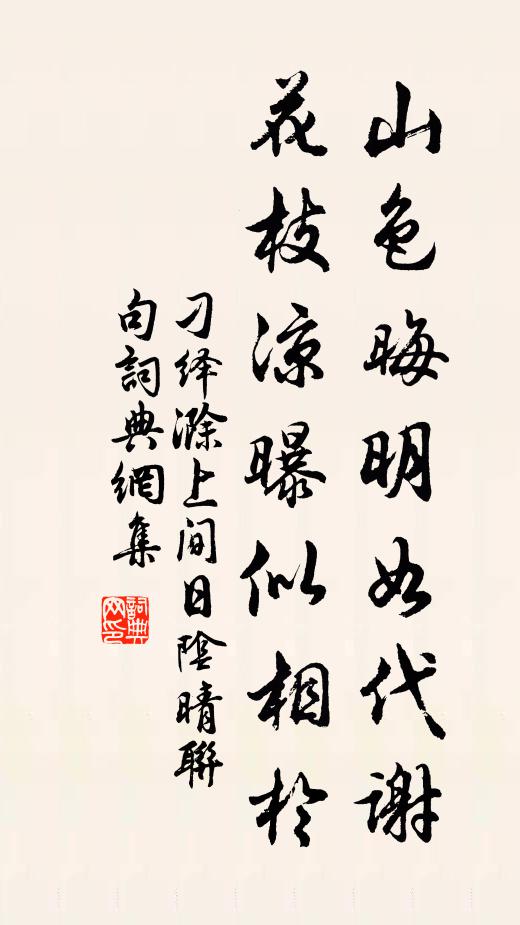 山色晦明如代謝
花枝凉曝似相於
刁绎滁上间日陰晴聯
句詞典網集
詞典
网印